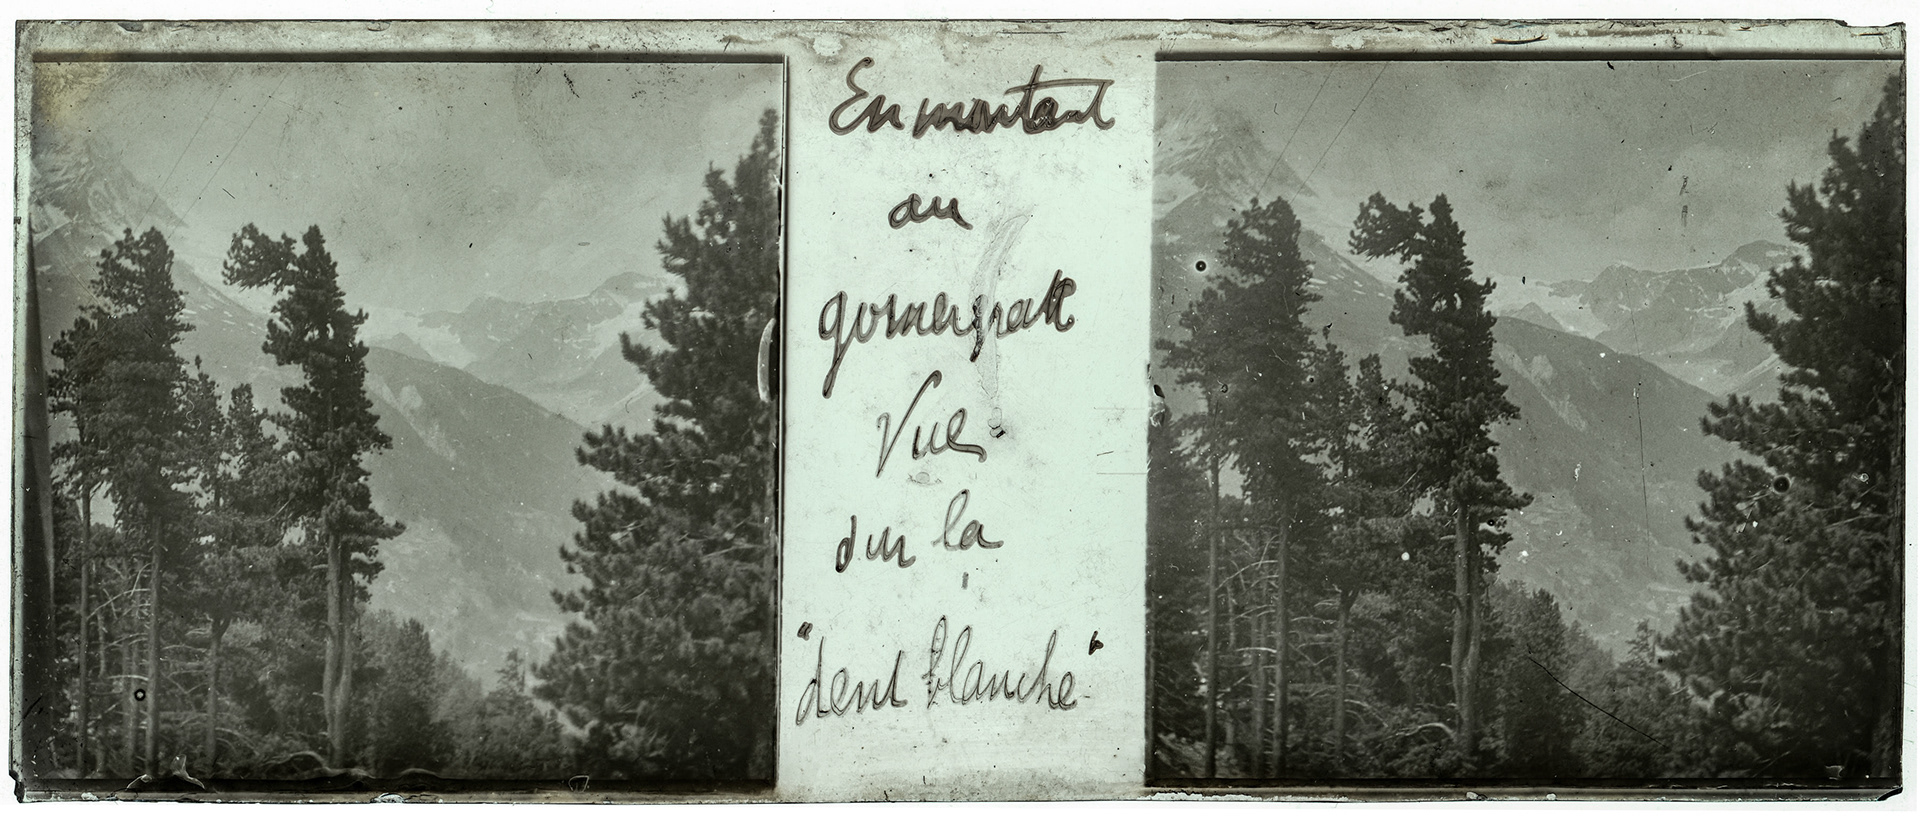 En montant
au
gornergratt
Vue
sur la
"dent blanche"